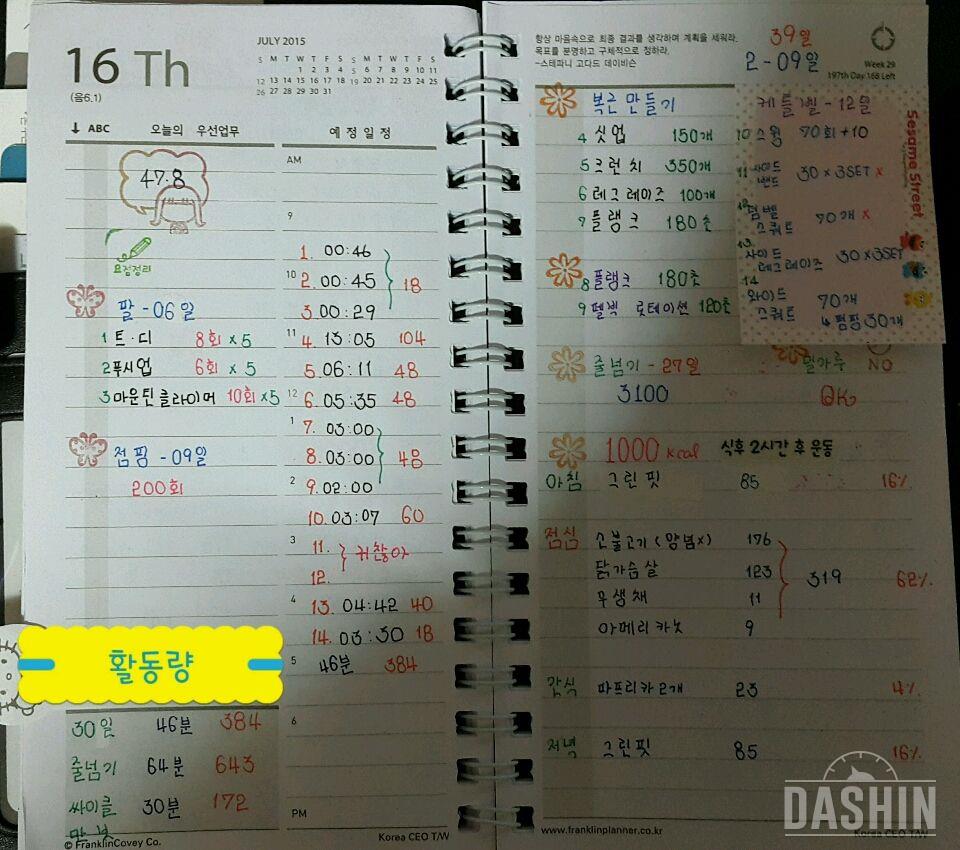 16 Th
(음6.1)
JULY 2015
S M T W T F S S M T W T F S
1 2 3 4 5 6 7 8 9 10 11
12 13 14 15 16 17 18 19 20 21 22 23 24 25
26 27 28 29 30 31
↓ ABC 오늘의 우선업무
예 정 일 정
47.8
요점정리
팔 - 06일
1 트·디 8회 x5
2 푸시업 6회 x 5
3 마운틴 클라이머 10회 x5
점핑 - 09일
200회
활동량
30일 46분 384
줄넘기 64분 643
싸이클 30분 172
© FranklinCovey Co.
AM
9
1. 00:46
10 2. 00:45 18
3. 00:29
11 4. 13:05 104
5. 06:11 48
12 6. 05:35 48
1 7. 03:00
8. 03:00 48
2 9. 02:00
10. 03:07 60
3 11. 귀찮아
12.
4 13. 04:42 40
14. 03:30 18
5 46분 384
6
PM
Korea CEO T/W
항상 마음속으로 최종 결과를 생각하며 계획을 세워라.
목표를 분명하고 구체적으로 정하라.
-스테파니 고다드 데이비슨
39일
2 - 09일
Week 29
197th Day 168 Left
복근 만들기
4 싯업 150개
5 크런치 350개
6 레그레이즈 100개
7 플랭크 180초
8 플랭크 180초
9 펠빅 로테이션 120초
케틀벨 - 12일
10 스윙 70회 +10
11 사이드 밴드 30 x 3SET x
12 덤벨 스쿼트 70개 x
13 사이드 레그레이즈 30 x 3SET
14 와이드 스쿼트 70개
4 펌핑 30개
Sesame Street
줄넘기 - 27일
3100
밀가루 NO
OK
1000 kcal 식후 2시간 후 운동
아침 그린핏 85 16%
점심 소불고기 (양념x) 176
닭가슴살 123 319 62%
무생채 11
아메리카노 9
간식 파프리카 2개 23 4%
저녁 그린핏 85 16%
www.franklinplanner.co.kr
Korea CEO T/W
DASHIN